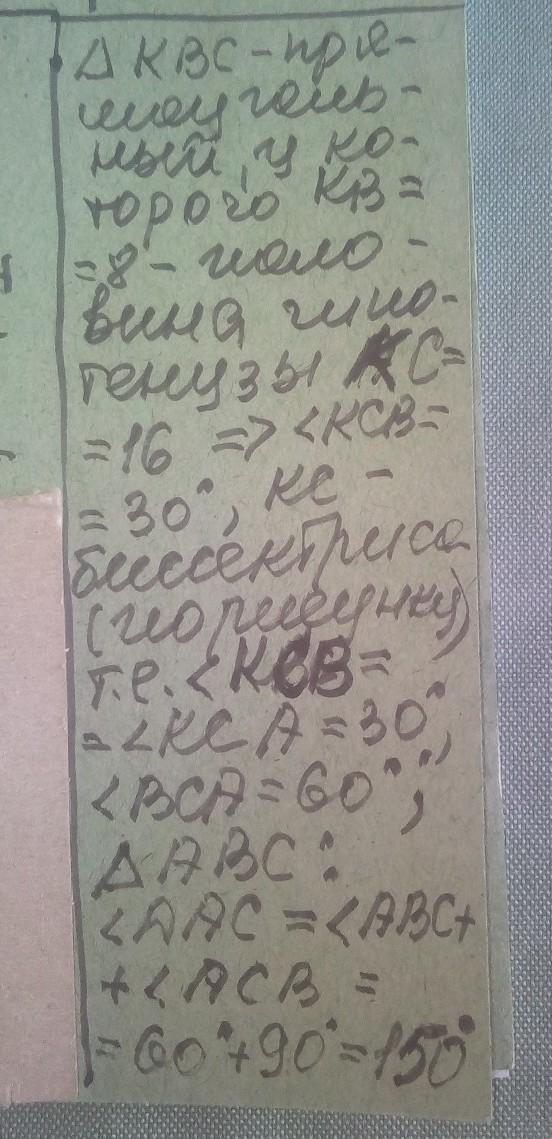 Δ KBC - пря-
моуголь-
ный, у ко-
торого KB =
= 8 - поло-
вина гипо-
тенузы KC =
= 16 => <KCB =
= 30°, KC -
биссектриса
(по рисунку)
т.е. <KCB =
= <KCA = 30°,
<BCA = 60°;
Δ ABC:
<AAC = <ABC +
+ <ACB =
= 60° + 90° = 150°